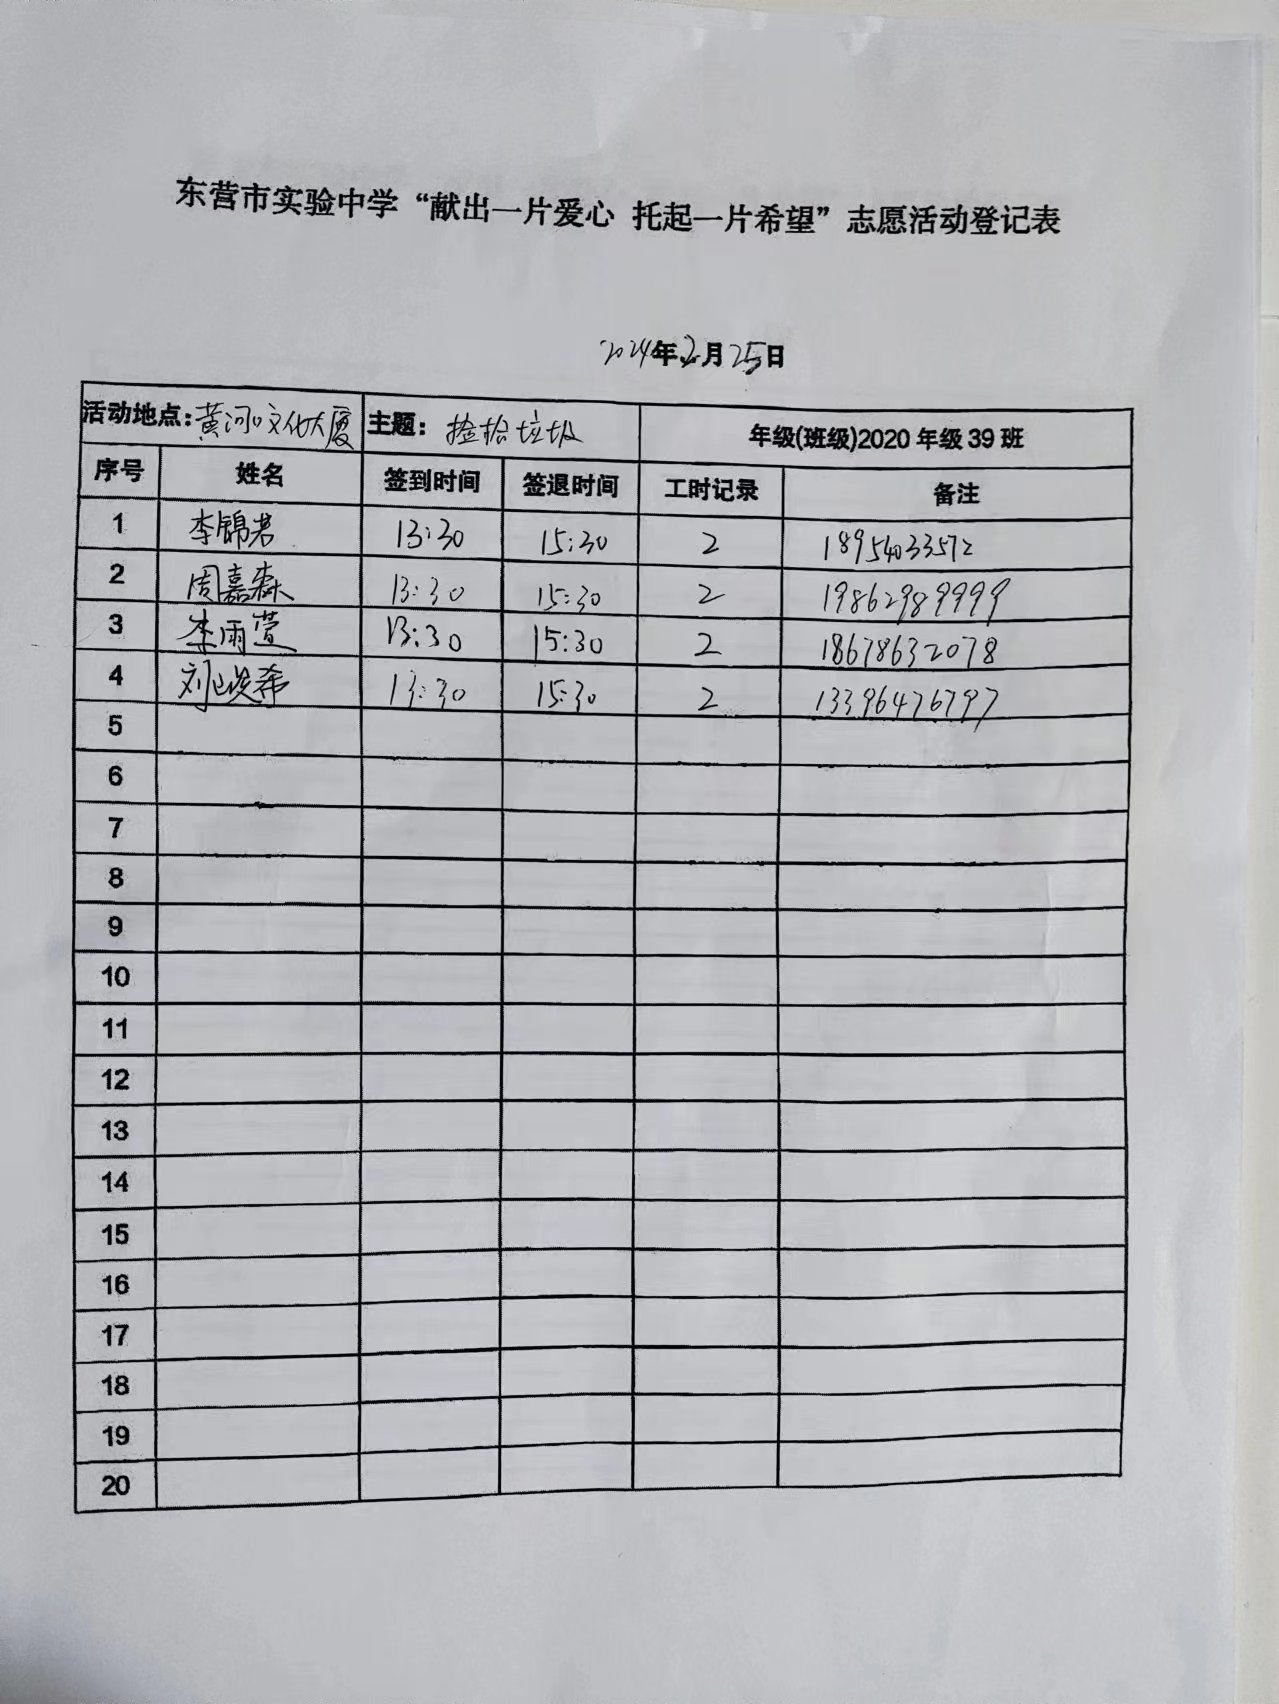 东营市实验中学“献出一片爱心 托起一片希望”志愿活动登记表
2024年2月25日
活动地点:黄河口文化大厦 主题：捡拾垃圾 年级(班级)2020年级39班
序号 姓名 签到时间 签退时间 工时记录 备注
1 李锦岩 13:30 15:30 2 18954033572
2 周嘉森 13:30 15:30 2 19862989999
3 李雨萱 13:30 15:30 2 18678632078
4 刘峻希 13:30 15:30 2 13396476797
5
6
7
8
9
10
11
12
13
14
15
16
17
18
19
20